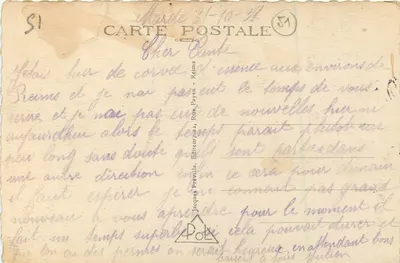 51 Mardi 31-10-
51
CARTE POSTALE
Cher
hier de corvée d'essence aux environs de
Reims et je nai pas eut le temps de vous
et je nai pas eu de nouvelles hier ni
aujourdhui alors le temps parait plutot un
peu long sans doute quils sont parties dans
une autre direction enfin ce sera pour demain
il faut espérer je ne connait pas grand
nouveau à vous aprendre pour le moment il
fait un temps superbe si cela pouvait durer et
que on eu des permes on serait heureux, en attendant bons
baisers à tous Julien
Jacques Fréville, Editeur, Rue, Reims